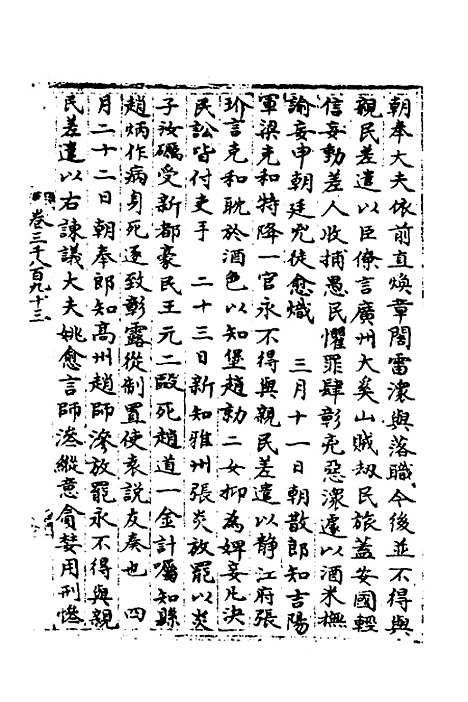 朝奉大夫依前直煥章閣雷潨與落職今後並不得與
親民差遣以臣僚言廣州大奚山賊刼民旅蓋安國輕
信妄動差人收捕愚民懼罪肆彰克惡潨遽以酒米撫
諭妄申朝廷兇徒愈熾　三月十一日朝散郎知吉陽
軍梁克和特降一官永不得與親民差遣以静江府張
玠言克和耽於酒色以知堡趙勍二女抑為婢妾凡決
民訟皆付吏手　二十三日新知雅州張炎放罷以炎
子汝礪受新都豪民王元二毆死趙道一金計囑知縣
趙炳作病身死遂致彰露從制置使袁說友奏也　四
月二十二日朝奉郎知高州趙師滲放罷永不得與親
民差遣以右諫議大夫姚愈言師滲縱意貪婪用刑慘
卷三千八百九十三